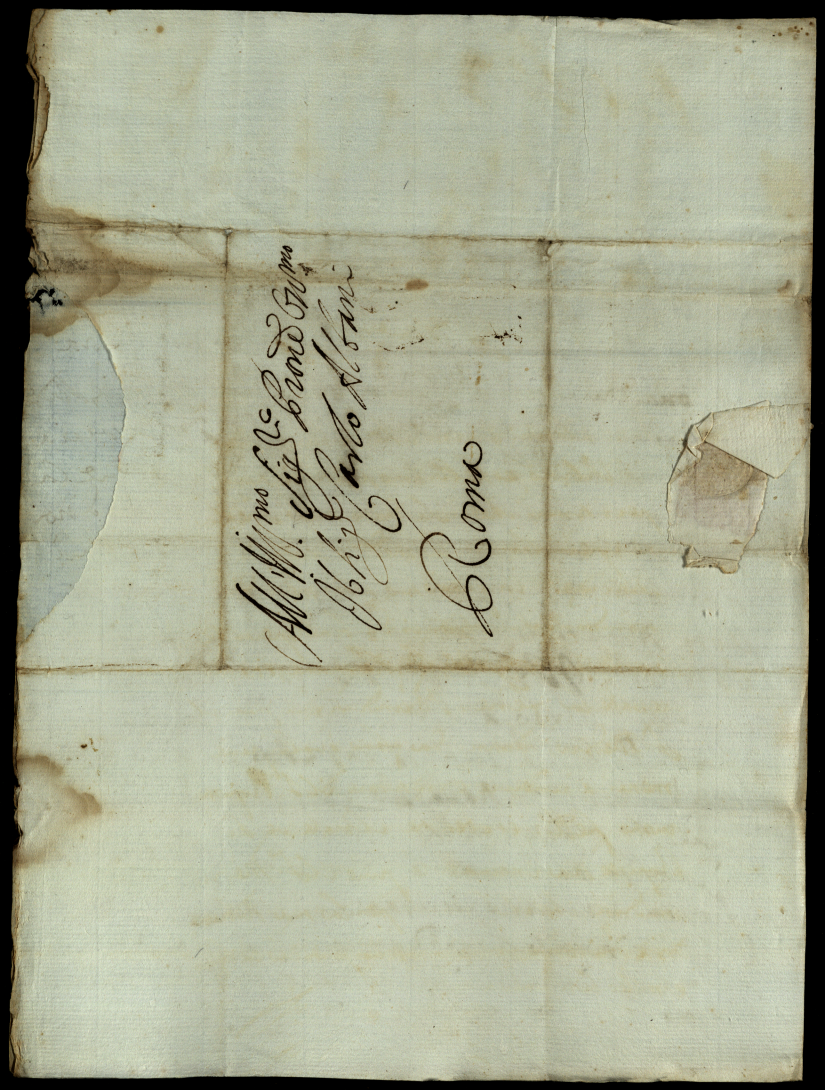 All' Ill.mo Sig.re e Prone Col.mo
Il Sig. Carlo Albani
Roma